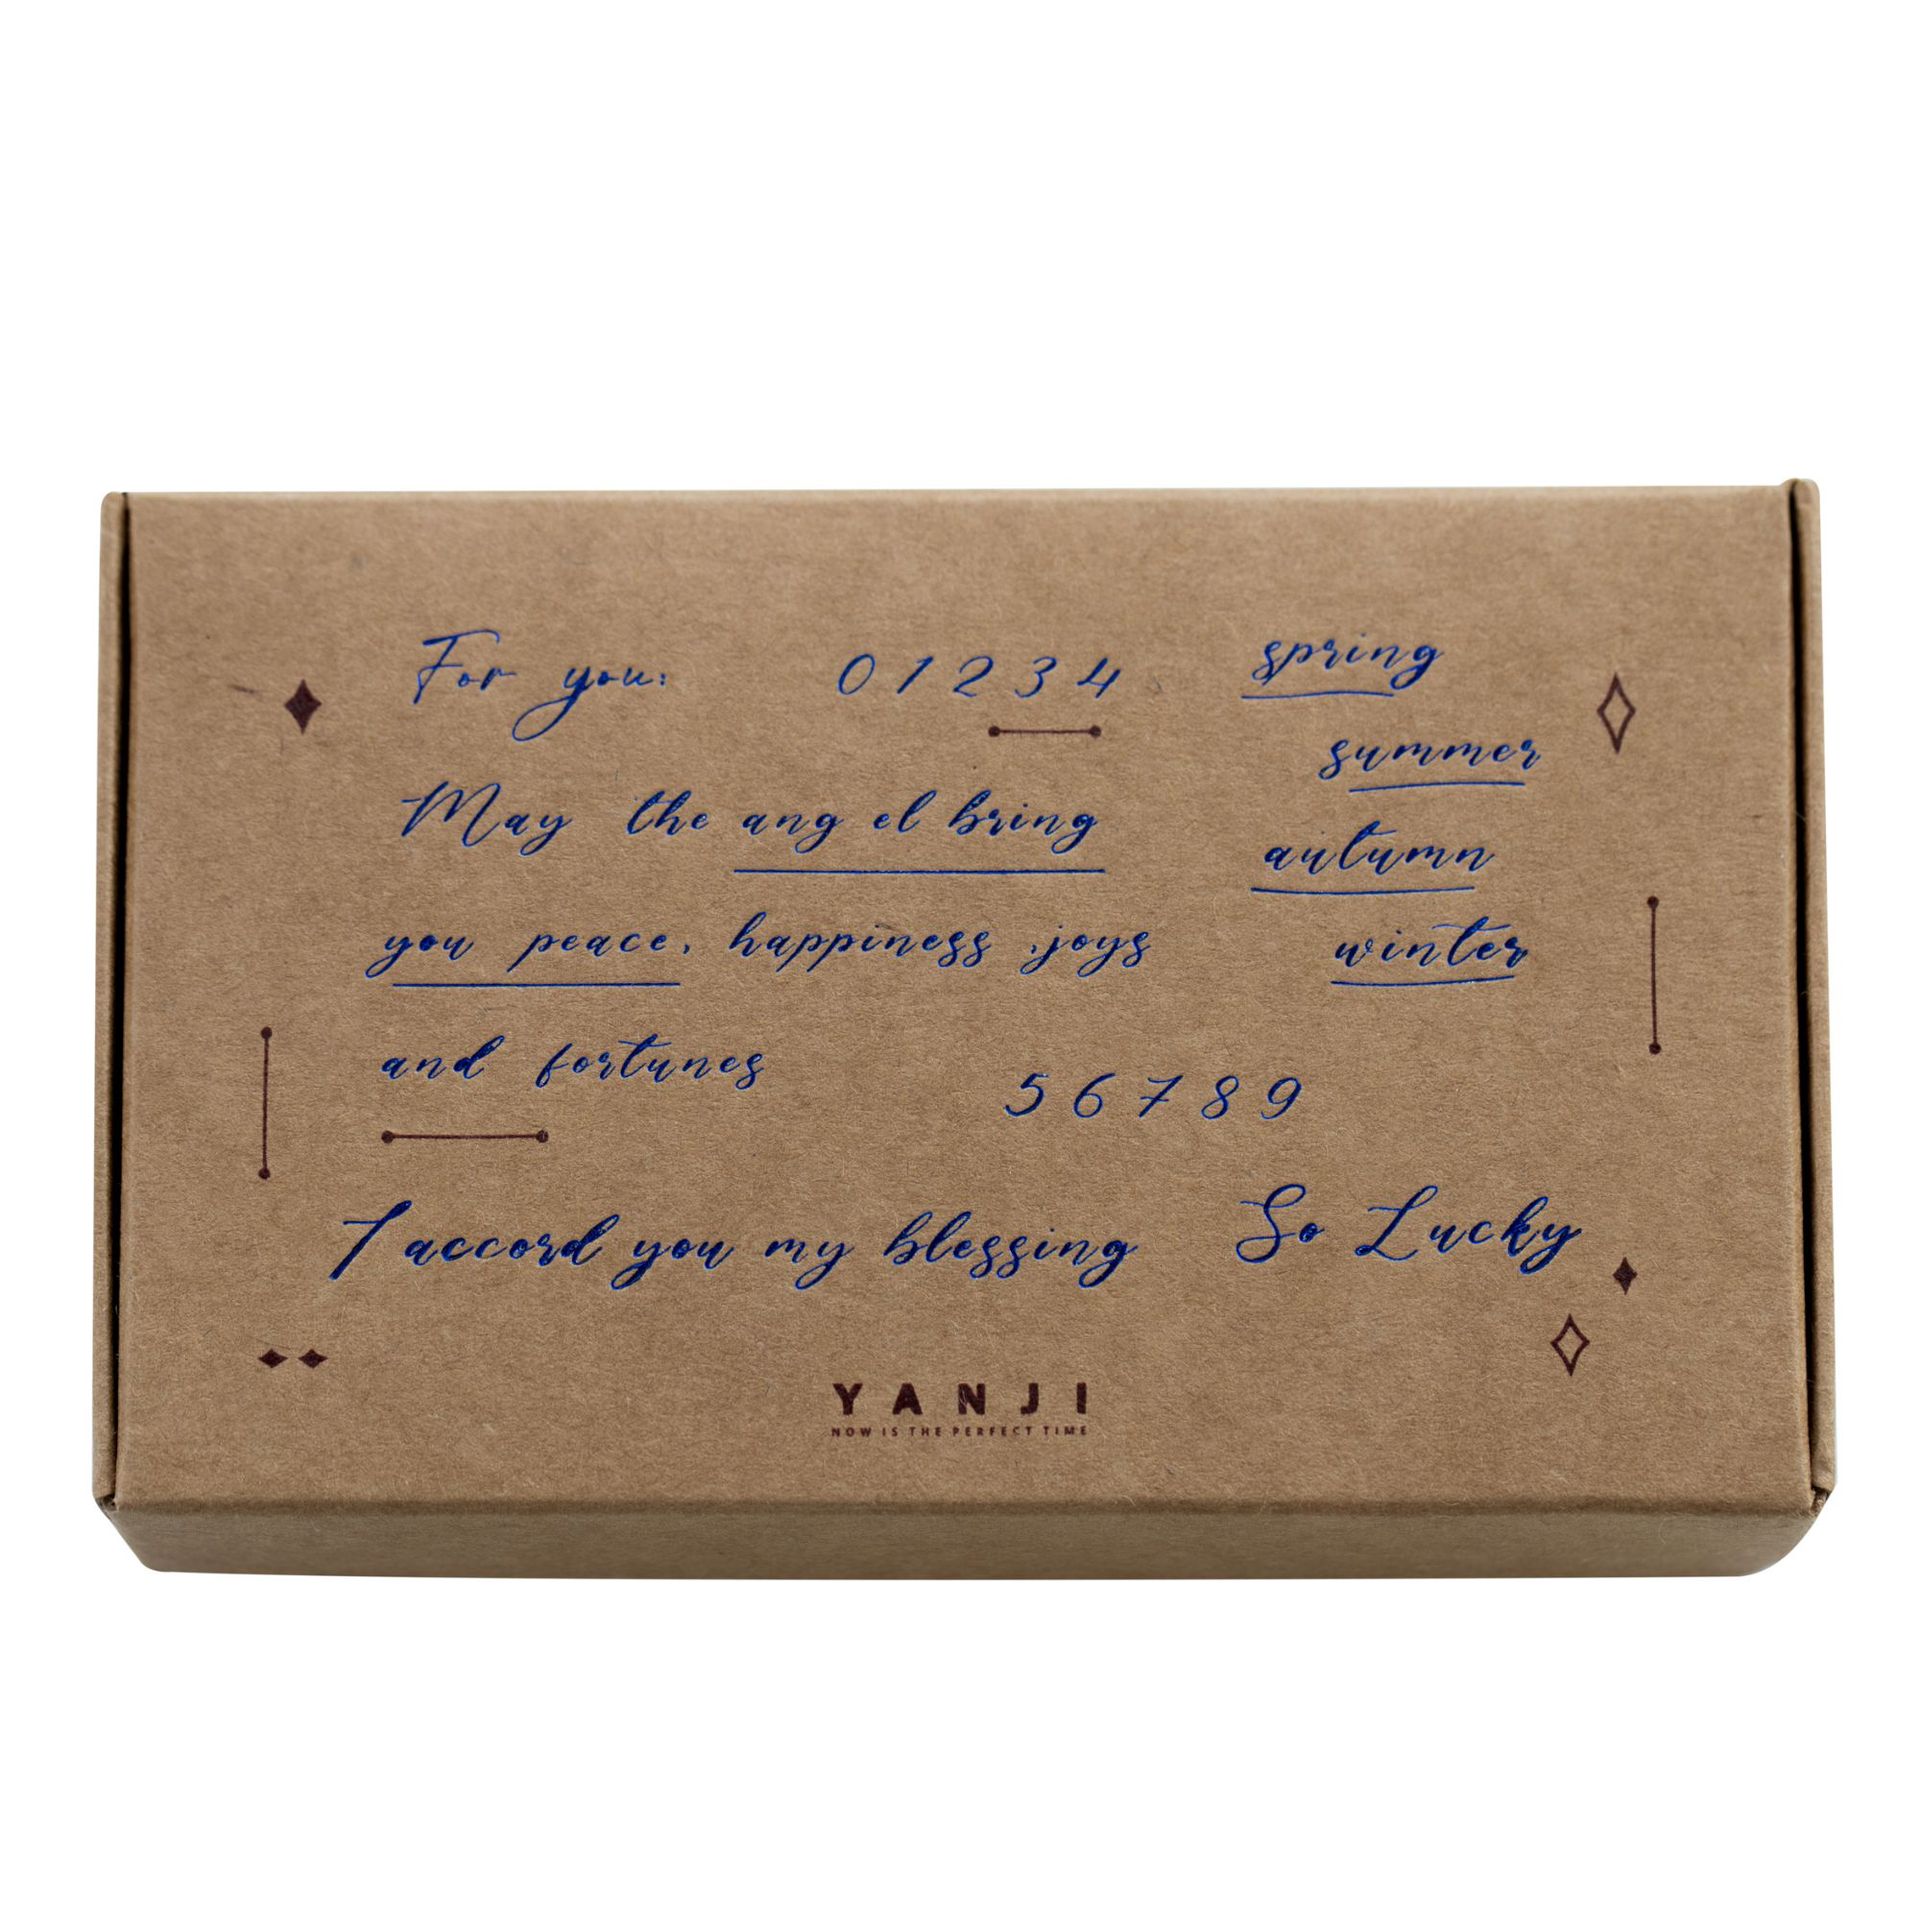 For you:
0 1 2 3 4
spring
summer
May the ang el bring
autumn
you peace, happiness ,joys
winter
and fortunes
5 6 7 8 9
I accord you my blessing
So Lucky
YANJI
NOW IS THE PERFECT TIME